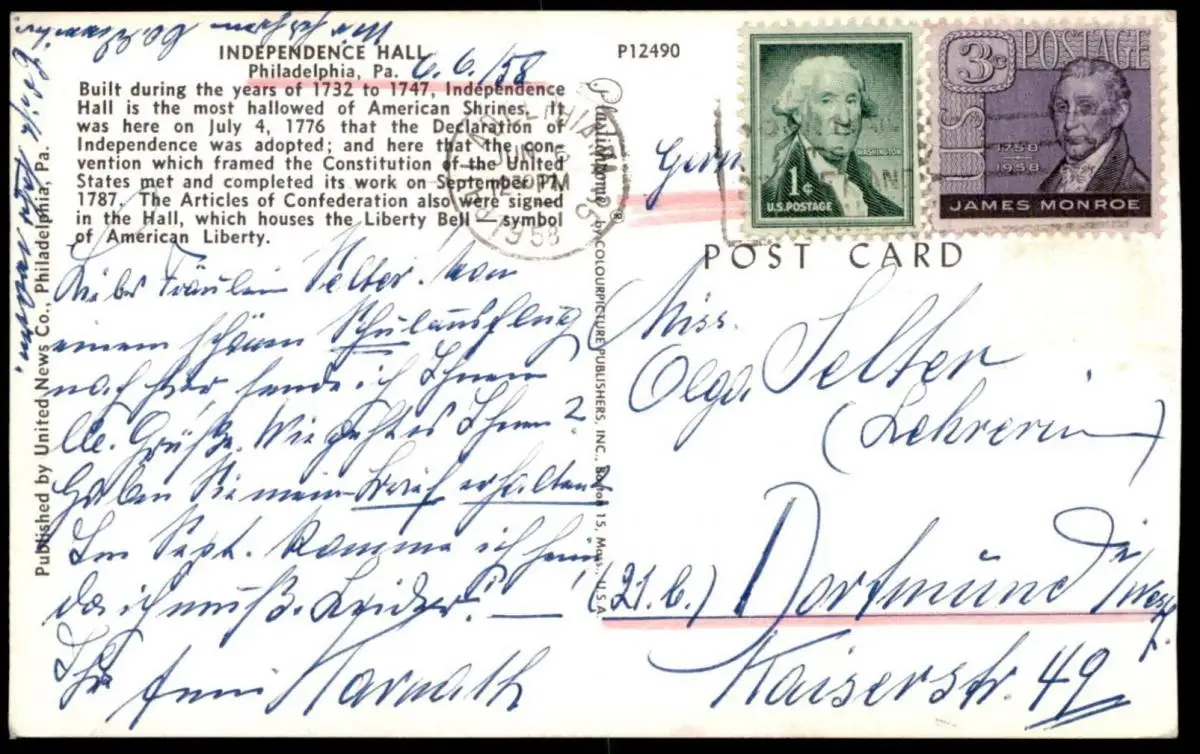 INDEPENDENCE HALL
Philadelphia, Pa. 6.6./58
Built during the years of 1732 to 1747, Independence
Hall is the most hallowed of American Shrines. It
was here on July 4, 1776 that the Declaration of
Independence was adopted; and here that the con-
vention which framed the Constitution of the United
States met and completed its work on September 17,
1787. The Articles of Confederation also were signed
in the Hall, which houses the Liberty Bell — symbol
of American Liberty.
Liebes Fräulein Selter. Von
einem schönen Schulausflug
nach hier, sende ich Ihnen
lb. Grüße. Wie geht es Ihnen?
Haben Sie meinen Brief erhalten?
Im Sept. komme ich heim,
da ich muß. Leider! —
Ihr Karnath
Published by United News Co., Philadelphia, Pa.
P12490
Plastichrome® by COLOURPICTURE PUBLISHERS, INC., Boston 15, Mass., U.S.A.
PHILADELPHIA
JUN 6
PM
1958
1¢
WASHINGTON
U.S. POSTAGE
3¢ POSTAGE
U.S.
1758
1958
JAMES MONROE
POST CARD
Miss.
Olga Selter
(Lehrerin)
(21.b.) Dortmund
Westf.
Kaiserstr. 49